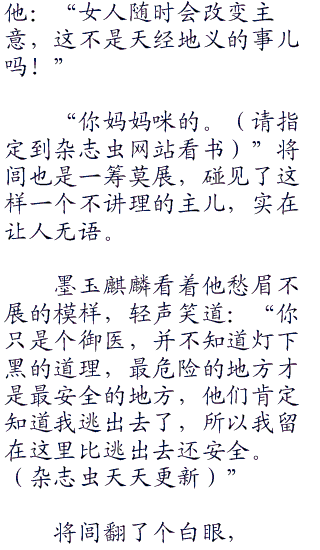 他：“女人随时会改变主
意，这不是天经地义的事儿
吗！”
“你妈妈咪的。（请指
定到杂志虫网站看书）”将
闾也是一筹莫展，碰见了这
样一个不讲理的主儿，实在
让人无语。
墨玉麒麟看着他愁眉不
展的模样，轻声笑道：“你
只是个御医，并不知道灯下
黑的道理，最危险的地方才
是最安全的地方，他们肯定
知道我逃出去了，所以我留
在这里比逃出去还安全。
（杂志虫天天更新）”
将闾翻了个白眼，